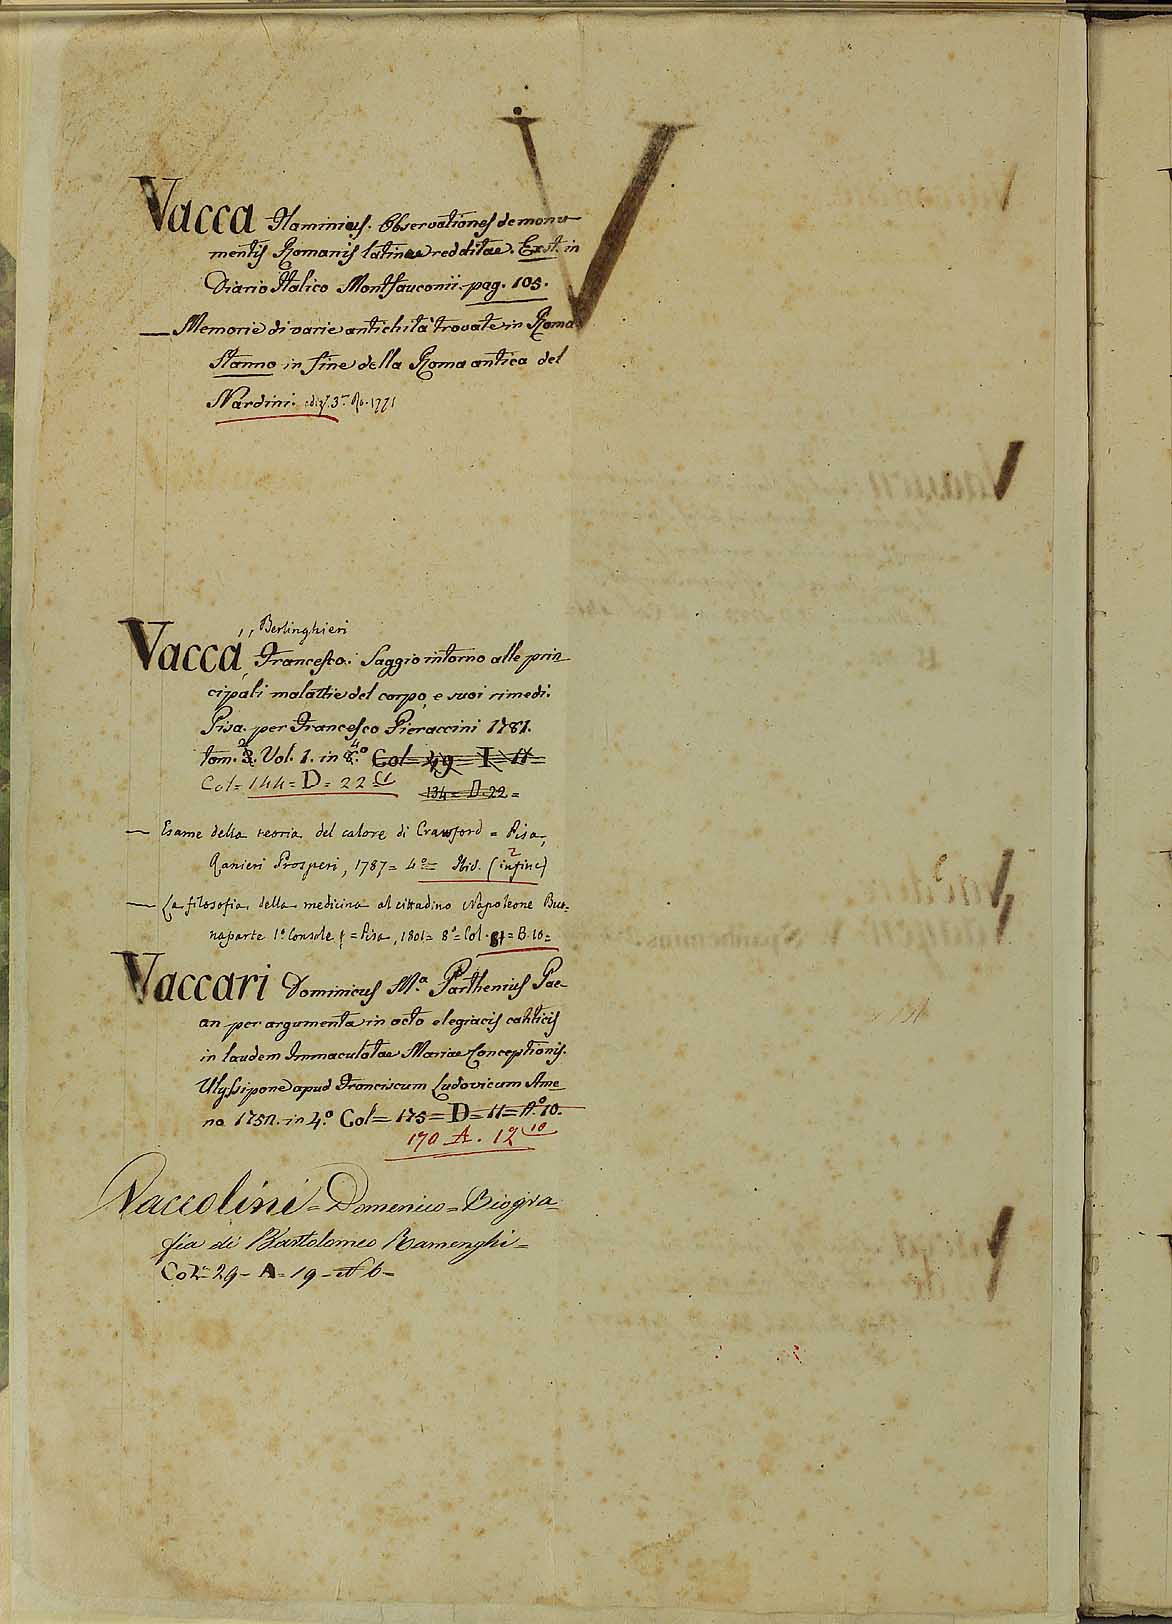 V
Vacca Flaminius. Observationes de monu-
mentis Romanis latinae redditae. Exst. in
Diario Italico Montfauconii. pag. 105.
— Memorie di varie antichità trovate in Roma
Stanno in fine della Roma antica del
Nardini. ediz. 3.ª Ro. 1771
Berlinghieri
Vaccá, Francesco. Saggio intorno alle prin-
cipali malattie del corpo, e suoi rimedi.
Pisa. per Francesco Pieraccini 1781.
tom. 2. Vol. 1. in 4.º Col= 49= I= 11=
Col= 144= D= 22 (1 134= D.22=
— Esame della teoria del calore di Crawford = Pisa,
Ranieri Prosperi, 1787= 4º= Ibid. (2 in fine)
— La filosofia della medicina al cittadino Napoleone Buo-
naparte 1º Console = Pisa, 1801= 8º= Col. 81= B.10=
Vaccari Dominicus M.ª Parthenius Pae-
an per argumenta in octo elegiacis canticis
in laudem Immaculatae Mariae Conceptionis.
Ulyssipone apud Franciscum Ludovicum Ame-
no 1752. in 4.º Col= 175= D= 11= Nº 10.
170 A. 12 (10
Vaccolini= Domenico= Biogra-
fia di Bartolomeo Ramenghi=
Col= 29- A= 19- N 6-